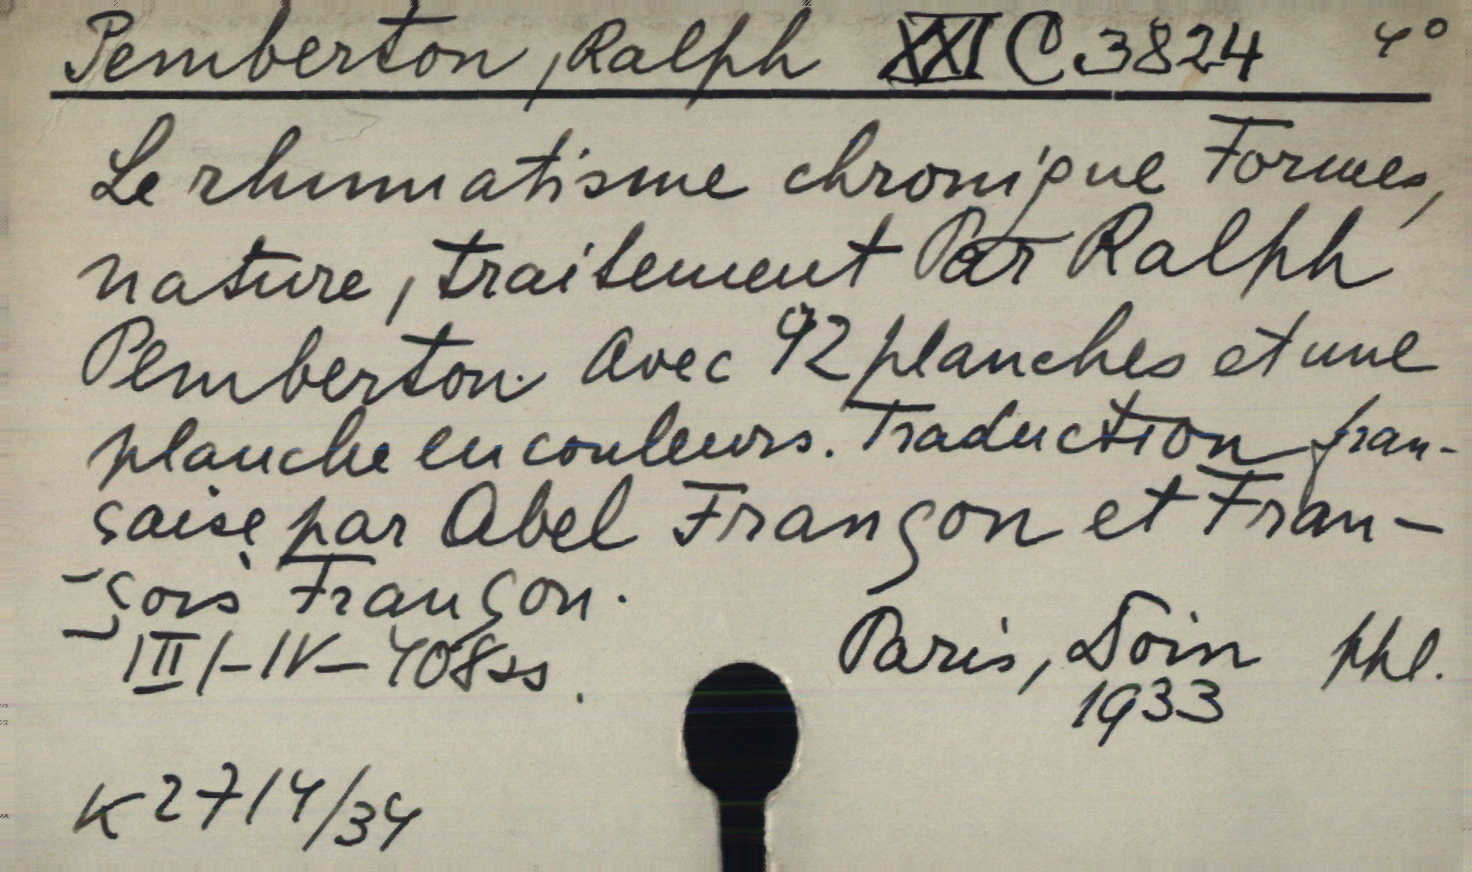 Pemberton, Ralph XXI C 3824 4°
Le rhumatisme chronique Formes,
nature, traitement Par Ralph
Pemberton. Avec 42 planches et une
planche en couleurs. Traduction fran-
çaise par Abel Françon et Fran-
-çois Françon.
III/-IV-408 ss. Paris, Doin ppl.
1933
K 2714/34